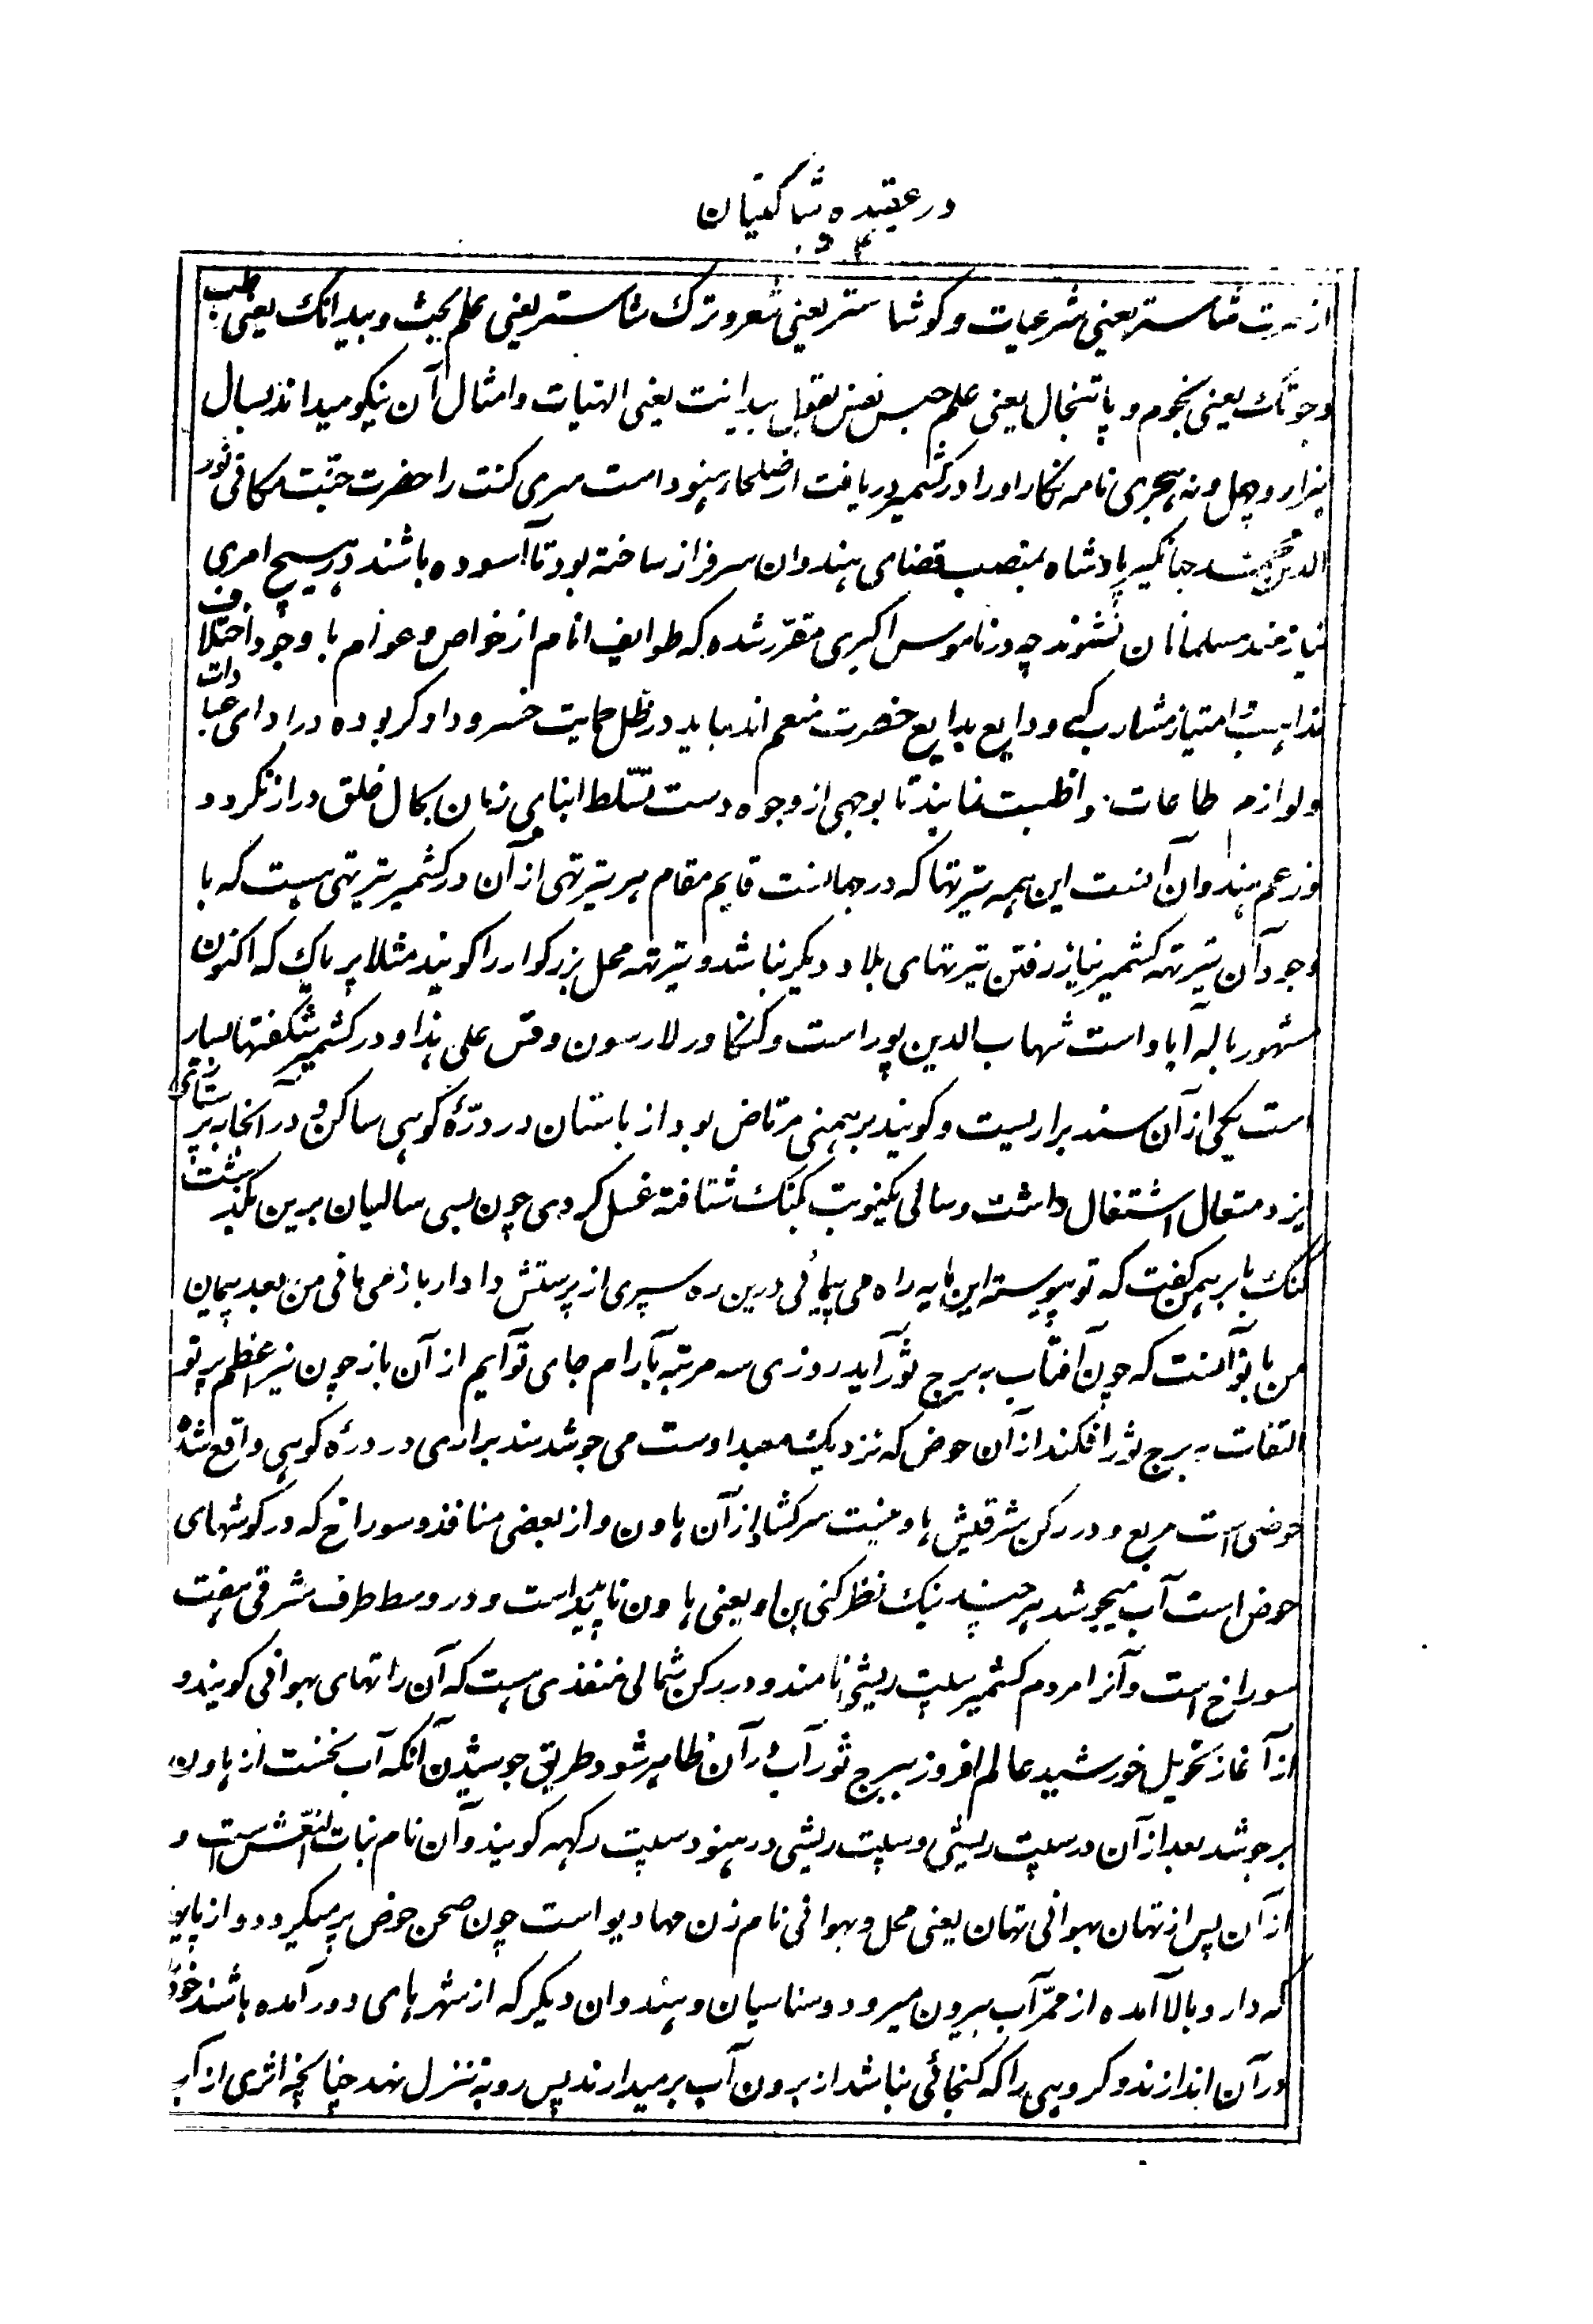 در عقیده شاکتیان
از سمرت شاستر یعنی شرعیات و کوشاستر یعنی شعر و ترک شاستر یعنی علم بحث و بیدانک یعنی طب
و جوتک یعنی نجوم و پاتنجال یعنی علم حبس نفس بقول بیدانت یعنی الهیات و امثال آن نیکو میداند بسال
هزار و چهل و نه هجری نامه نکار او را در کشمیر دریافت از صلحای هنود است سری کنت را حضرت جنّت مکانی نور
الدین محمد جهانکیر پادشاه بمنصب قضای هندوان سرفراز ساخته بود تا آسوده باشند و بهیچ امری
نیازمند مسلمانان نشوند چه در ناموس اکبری مقرّر شده که طوایف انام از خواص و عوام با وجود اختلاف
مذاهب و امتیاز مشارب که ودایع بدایع حضرت منعم اند باید در ظل حمایت خسرو دادکر بوده در ادای عبادات
و لوازم طاعات واظبت نمایند تا بوجهی از وجوه دست تسّلط ابنای زمان بحال خلق دراز نکردد و
و زعم هندوان آنست این همه تیرتها که در جهانست قایم مقام هر تیرتهی از آن در کشمیر تیرتهی هست که با
وجود آن تیرتهه کشمیر نیاز رفتن تیرتهای بلاد دیکر نباشد و تیرتهه محل بزرکوار را کویند مثلا پریاک که اکنون
مشهور باله آباد است شهاب الدین پور است و کنکا ور لارسون وقس علی هذا و در کشمیر شکفتها بسیار
است یکی از آن سند براریست و کویند برهمنی مرتاض بود از باستان در درّهٔ کوهی ساکن و در آنجا به پرستاری
ایزد متعال اشتغال داشت و سالی یکنوبت بکنک شتافته غسل کردی چون بسی سالیان برین بکذشت
کنک با برهمن کفت که تو پیوسته این مایه راه می پیمائی درین ره سپری از پرستش دادار باز می مانی من بعد پیمان
من با تو آنست که چون آفتاب به برج ثور آید روزی سه مرتبه بآرام جای تو آیم از آن باز چون نیر اعظم پرتو
التفات به برج ثور افکند از آن حوض که نزدیک معبد اوست می جوشد سند براری در درهٔ کوهی واقع شده
حوضی است مربع و در رکن شرقیش هاونیست سرکشاد از آن هاون و از بعضی منافذ و سوراخ که در کوشهای
حوض است آب میجوشد هر چند نیک نظر کنی بن او یعنی هاون ناپیداست و در وسط طرف شرقی هفت
سوراخ است و آنرا مردم کشمیر سپت ریشی نامند و در رکن شمالی منفذی هست که آن را تهای بهوانی کویند و
از آغاز تحویل خورشید عالم افروز ببرج ثور آب در آن ظاهر شود و طریق جوشیدن آنکه آب نخست از هاون
برجوشد بعد از آن در سپت ریشی و سپت ریشی در هنود سپت رکهه کویند و آن نام بنات النّعش است و
از آن پس از تهان بهوانی تهان یعنی محل و بهوانی نام زن مهادیو است چون صحن حوض پر میکردد و از پایها
که دارد بالا آمده از ممّر آب بیرون میرود و سناسیان و هندوان دیکر که از شهرهای دور آمده باشند خود
در آن اندازند و کروهی را که کنجائی نباشد از برون آب برمیدارند پس رو به تنزل نهد چنانچه اثری از آب